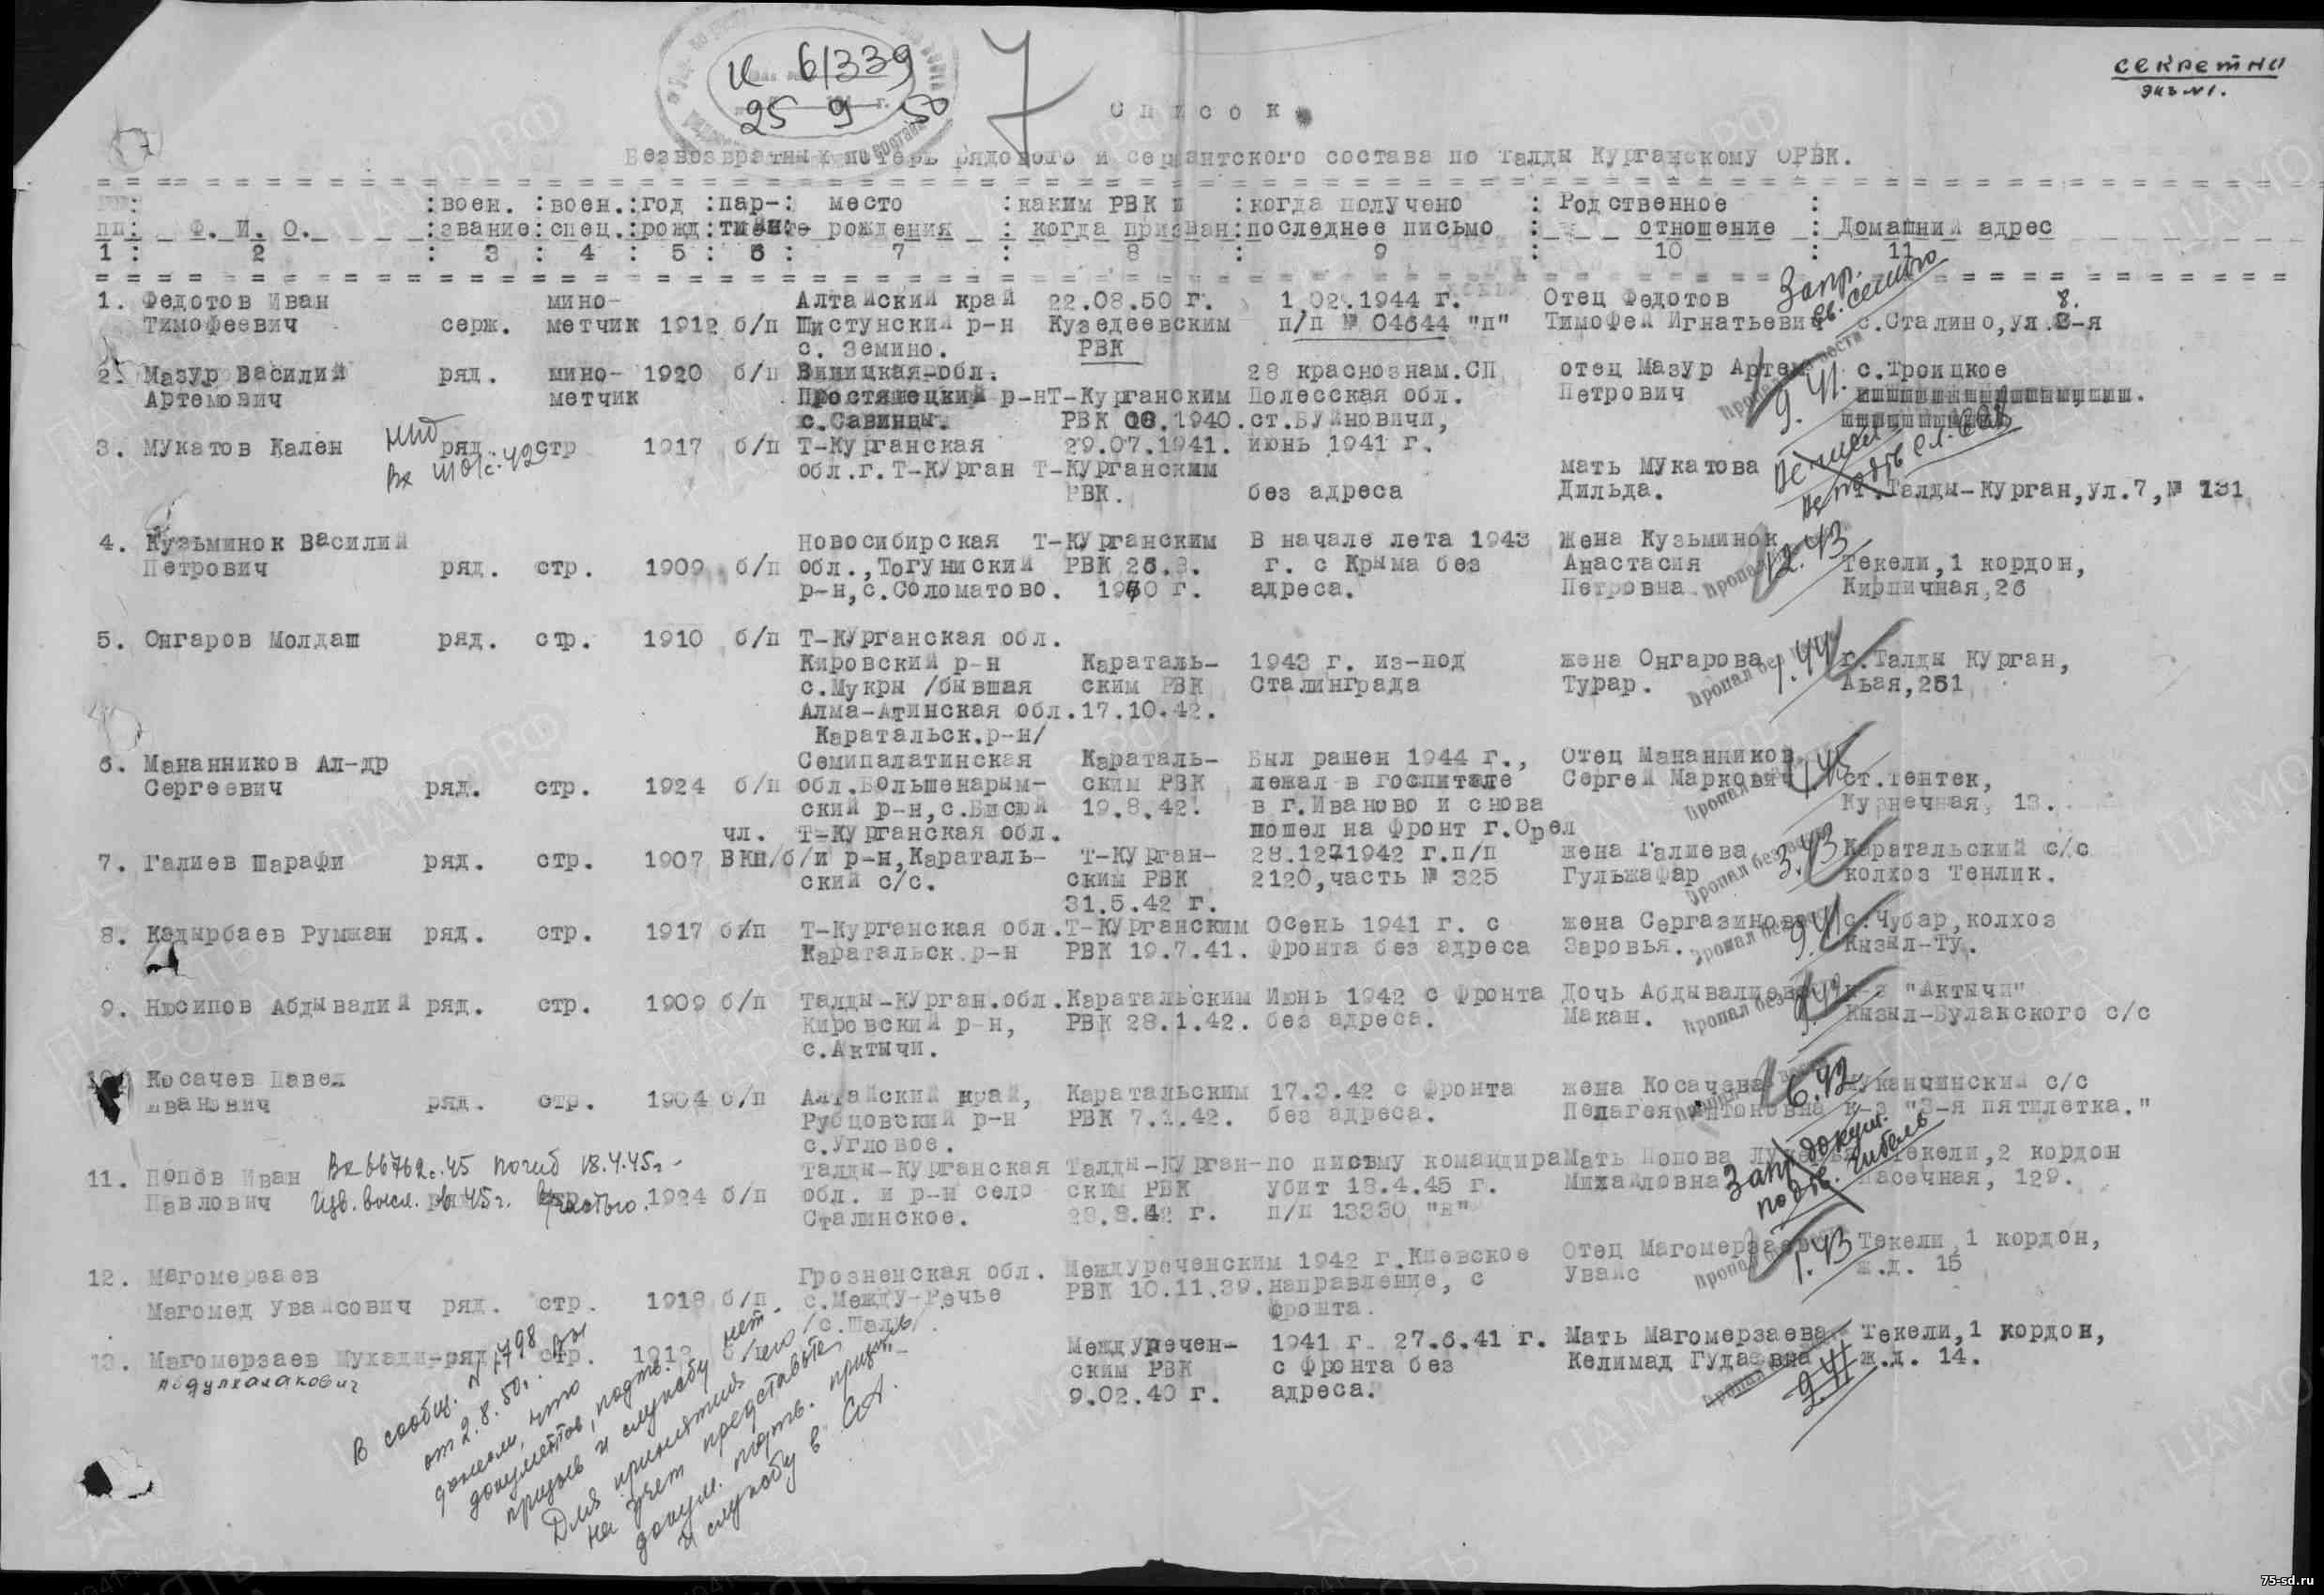 И 6/339
25 9 50
7
секретно
экз №1.
Список
Безвозвратных потерь рядового и сержантского состава по Талды Курганскому ОРВК.
пп: Ф. И. О. :воен. звание :воен. спец. :год рожд :пар- :место рождения :каким РВК и когда призван :когда получено последнее письмо :Родственное отношение : Домашний адрес
1 : 2 : 3 : 4 : 5 : 6 : 7 : 8 : 9 : 10 : 11
1. Федотов Иван мино- Алтайский край 22.08.50 г. 1.02.1944 г. Отец Федотов Запр. св. семью 8.
Тимофеевич серж. метчик 1912 б/п Шистунский р-н Кузедеевским п/п № 04644 "п" Тимофей Игнатьевич с.Сталино,ул.8-я
с. Земино. РВК
2. Мазур Василий ряд. мино- 1920 б/п Виницкая-обл. 28 краснознам.СП отец Мазур Артем с.Троицкое
Артемович метчик р-н Т-Курганским Полесская обл. Петрович 9.41.
с.Савинцы. РВК 08.1940. ст.Буйновичи,
3. Мукатов Кален ряд. стр 1917 б/п Т-Курганская 29.07.1941. июнь 1941 г.
обл.г.Т-Курган Т-Курганским мать Мукатова
РВК. без адреса Дильда. г.Талды-Курган,ул.7,№ 131
4. Кузьминок Василий Новосибирская Т-Курганским В начале лета 1943 Жена Кузьминок 12.43
Петрович ряд. стр. 1909 б/п обл.,Тогуниский РВК 26.8. г. с Крыма без Анастасия Текели,1 кордон,
р-н,с.Соломатово. адреса. Петровна Кирпичная,26
5. Онгаров Молдаш ряд. стр. 1910 б/п Т-Курганская обл.
Кировский р-н Караталь- 1943 г. из-под жена Онгарова Пропал без 1.44 г.Талды Курган,
с.Мукры /бывшая ским РВК Сталинграда Турар. Абая,251
Алма-Атинская обл.17.10.42.
Каратальск.р-н/
6. Мананников Ал-др Семипалатинская Караталь- Был ранен 1944 г., Отец Мананников
Сергеевич ряд. стр. 1924 б/п обл.Большенарым- ским РВК лежал в госпитале Сергей Маркович Пропал ст.Тентек,
ский р-н,с. 19.8.42. в г.Иваново и снова Курнечная, 13.
чл. Т-Курганская обл. пошел на фронт г.Орел
7. Галиев Шарафи ряд. стр. 1907 ВКП/б/и р-н,Караталь- Т-Курган- 28.12-1942 г.п/п жена Галиева Пропал без 3.43 Каратальский с/с
ский с/с. ским РВК 2120,часть № 325 Гульжафар колхоз Тенлик.
31.5.42 г.
8. Кадырбаев Румжан ряд. стр. 1917 б/п Т-Курганская обл.Т-Курганским Осень 1941 г. с жена Сергазинова с.Чубар,колхоз
Каратальск.р-н РВК 19.7.41. фронта без адреса Заровья. 9.41 Кызыл-Ту.
9. Нюсипов Абдывалий ряд. стр. 1909 б/п Талды-Курган.обл.Каратальским Июнь 1942 с фронта Дочь Абдывалиева к-з "Актычи"
Кировский р-н, РВК 28.1.42. без адреса. Макан. Пропал без Кызыл-Булакского с/с
с.Актычи.
10. Косачев Павел
Иванович ряд. стр. 1904 б/п Алтайский край, Каратальским 17.3.42 с фронта жена Косачева 6.42 с/с
Рубцовский р-н РВК 7.1.42. без адреса. Пелагея Антоновна к-з "3-я пятилетка."
с.Угловое.
11. Попов Иван Вх 66762с.45 погиб 18.4.45г. Талды-Курганская Талды-Курган- по письму командира Мать Попова Запр. докум. Текели,2 кордон
Павлович Изв. высл. в 45г. частью. 1924 б/п обл. и р-н село ским РВК убит 18.4.45 г. Михайловна подтв. гибель Пасечная, 129.
Сталинское. 28.8.42 г. п/п 13330 "н"
12. Магомерзаев Грозненская обл. Междуреченским 1942 г.Киевское Отец Магомерзаев 1.43 Текели,1 кордон,
Магомед Увайсович ряд. стр. 1918 б/п. с.Между-Речье РВК 10.11.39. направление, с Увайс ж.д. 15
/с.Шали/. фронта.
13. Магомерзаев Мухади- ряд. стр. Междуречен- 1941 г. 27.6.41 г. Мать Магомерзаева Текели,1 кордон,
Абдулхалакович ским РВК с фронта без Келимад Гудаевна 9.41 ж.д. 14.
9.02.40 г. адреса.
В сообщ. № 1798
от 2.8.50г. Вы
донесли, что
документов, подтв.
призыв и службу нет.
Для принятия его
на учет представьте
докум. подтв. призыв
и службу в СА.
75-sd.ru